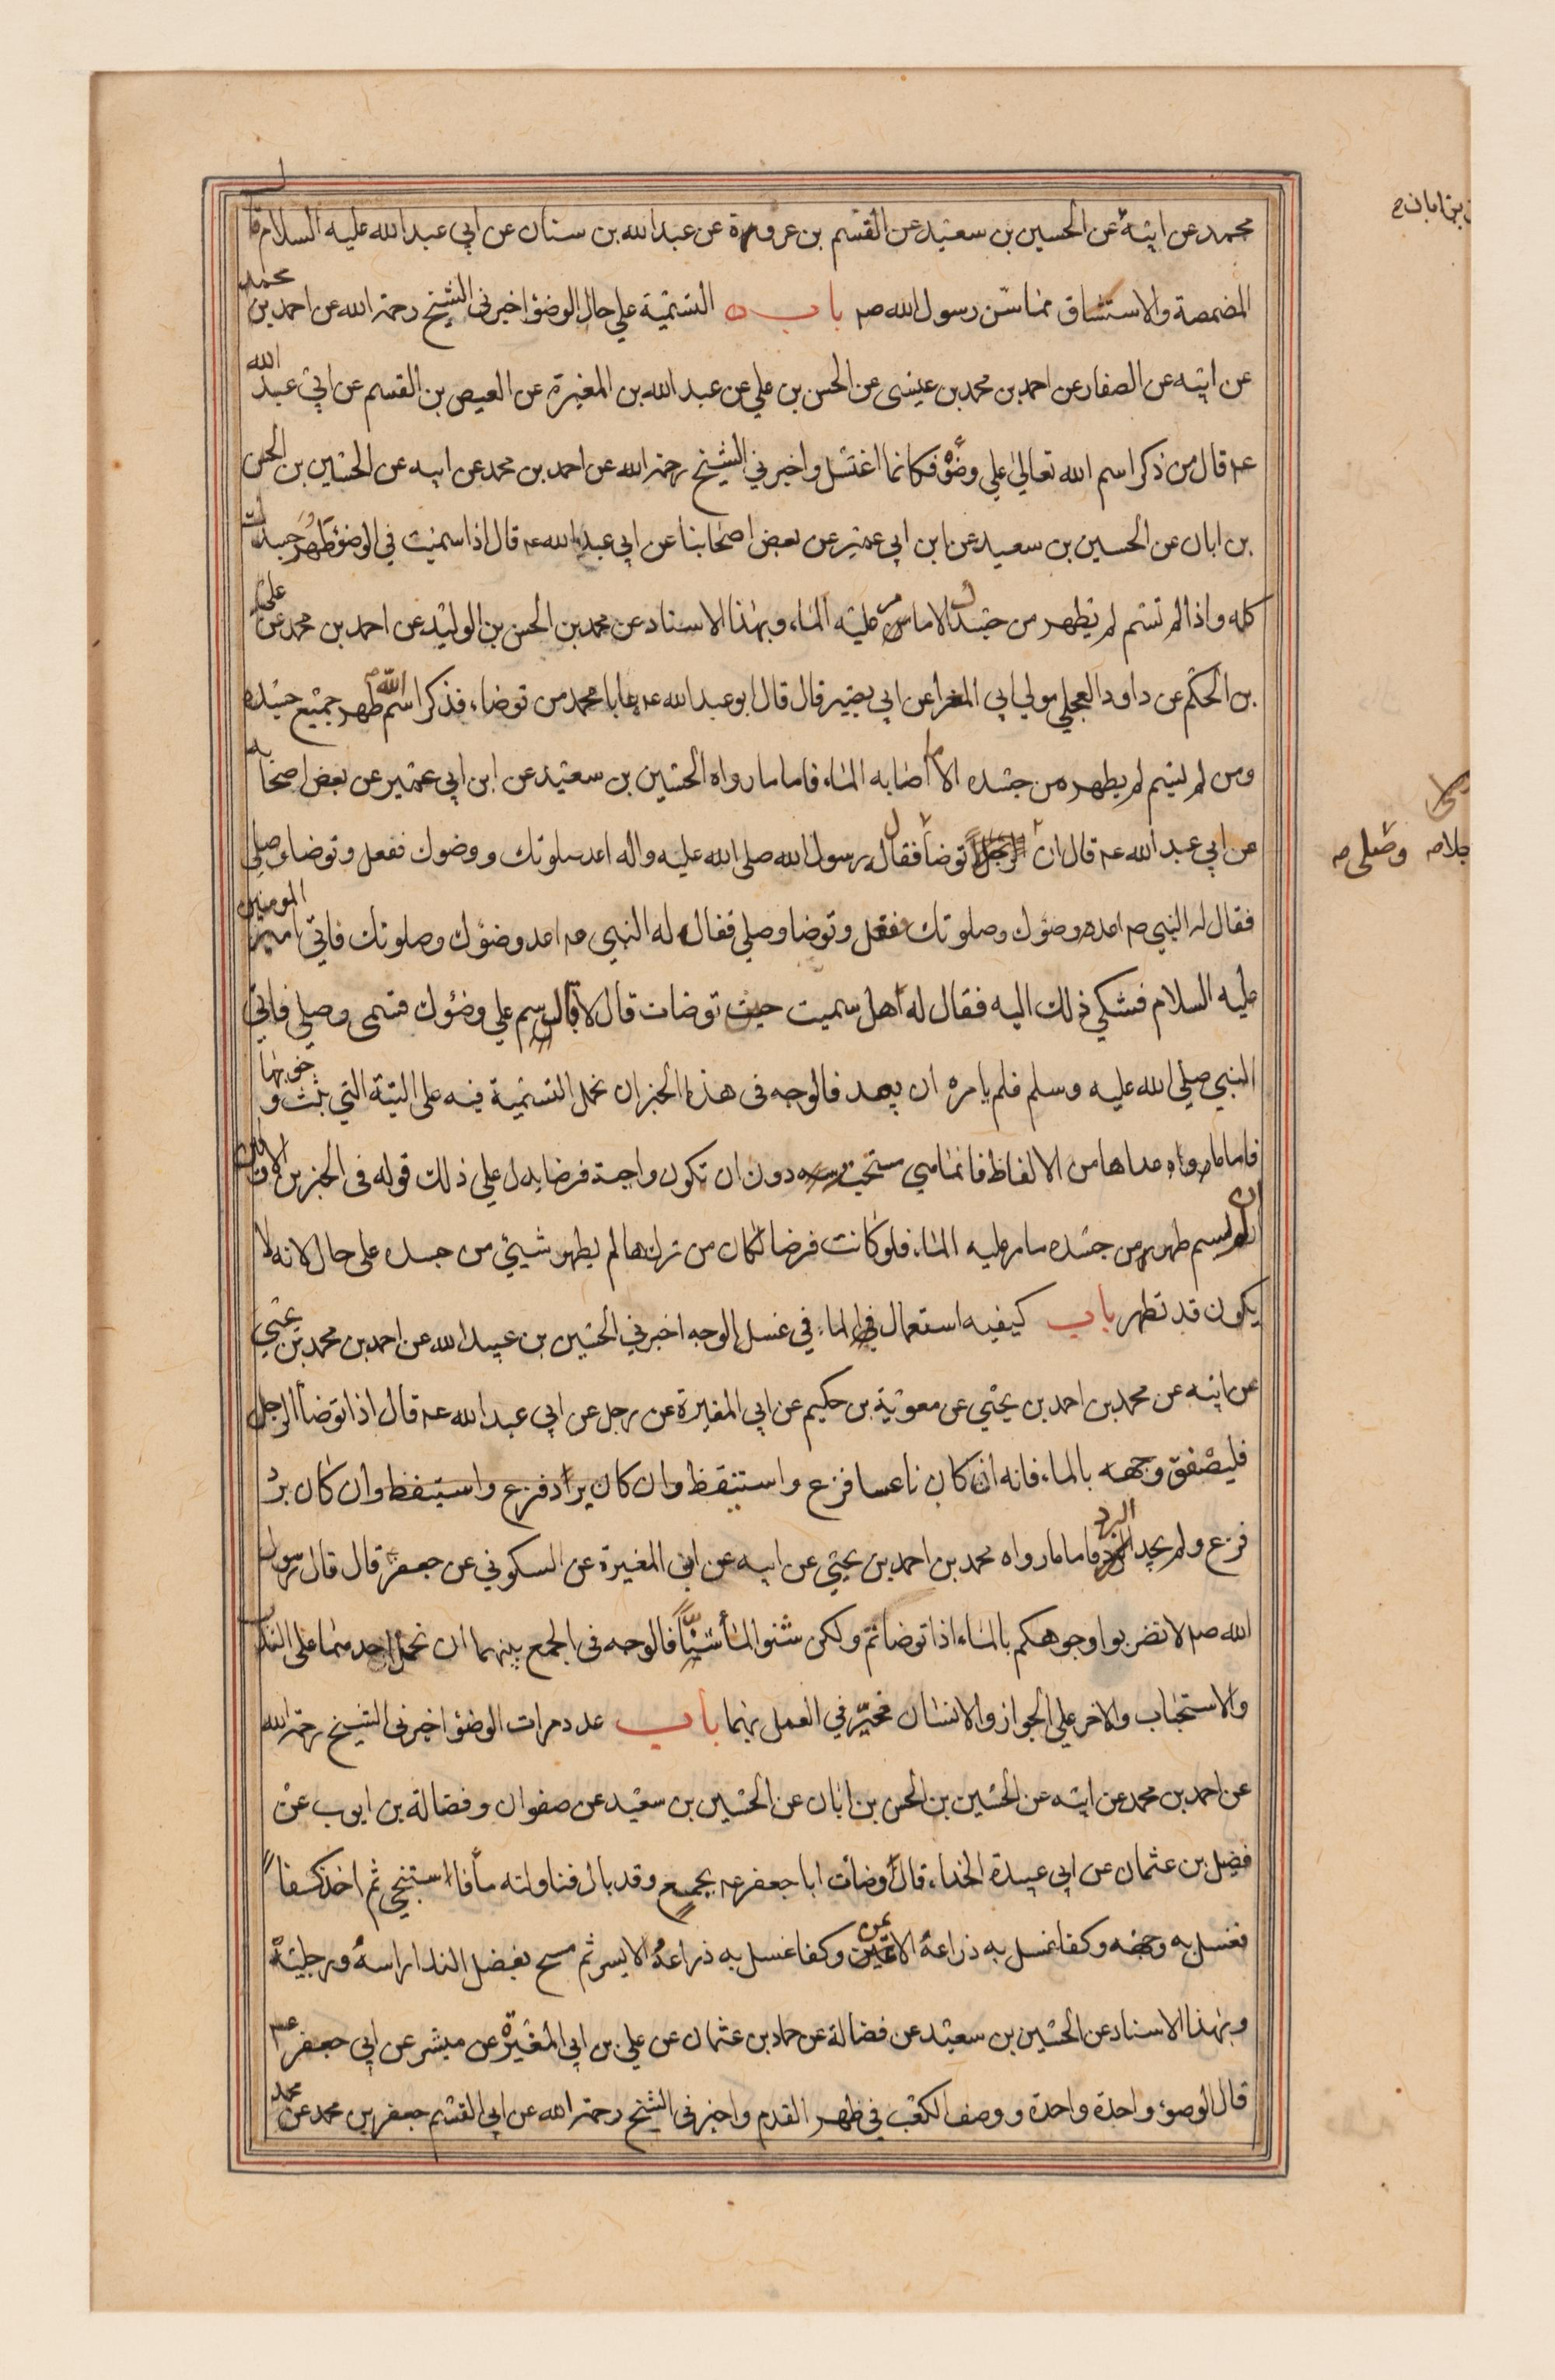 محمد عن ابيه عن الحسين بن سعيد عن القسم بن عروة عن عبد الله بن سنان عن ابي عبد الله عليه السلام قال
المضمضة والاستنشاق مما سن رسول الله صم باب التسمية علي حال الوضؤ اخبرني الشيخ رحمة الله عن احمد بن محمد
عن ابيه عن الصفار عن احمد بن محمد بن عيسى عن الحسن بن علي عن عبد الله بن المغيرة عن العيص بن القسم عن ابي عبد الله
عم قال من ذكر اسم الله تعالي علي وضؤ فكانما اغتسل واخبرني الشيخ رحمة الله عن احمد بن محمد عن ابيه عن الحسين بن الحسن
بن ابان عن الحسين بن سعيد عن ابن ابي عمير عن بعض اصحابنا عن ابي عبد الله عم قال اذا سميت في الوضؤ طهر جسدك
كله واذا لم تسم لم يطهر من جسدك الا ما مر عليه الماء وبهذا الاسناد عن محمد بن الحسن بن الوليد عن احمد بن محمد عن علي
بن الحكم عن داود العجلي مولي ابي المغرا عن ابي بصير قال قال ابو عبد الله عم يا ابا محمد من توضاء فذكر اسم الله طهر جميع جسده
ومن لم يسم لم يطهر من جسده الا ما اصابه الماء فاما ما رواه الحسين بن سعيد عن ابن ابي عمير عن بعض اصحابه
عن ابي عبد الله عم قال ان رجلا توضأ فقال رسول الله صلى الله عليه واله اعد صلوتك ووضوك ففعل وتوضا وصلي
فقال له النبي صم اعد وضؤك وصلوتك ففعل وتوضا وصلي فقال له النبي صم اعد وضؤك وصلوتك فاتي امير المومنين
عليه السلام فشكي ذلك اليه فقال له هل سميت حيث توضات قال لا قال سم علي وضؤك فسمى وصلي فاتي
النبي صلي الله عليه وسلم فلم يامره ان يعيد فالوجه في هذا الخبر ان نحمل التسمية فيه على النية التي ثبت وجوبها
فاما ما عداها من الالفاظ فانما هي مستحبة دون ان تكون واجبة فرضا يدل علي ذلك قوله في الخبرين الاولين
ان من لم يسم طهر من جسده ما مر عليه الماء فلو كانت فرضا لكان من تركها لم يطهر شيئ من جسده على حال لانه لا
يكون قد تطهر باب كيفيه استعمال الماء في غسل الوجه اخبرني الحسين بن عبيد الله عن احمد بن محمد بن يحيي
عن ابيه عن محمد بن احمد بن يحيي عن معوية بن حكيم عن ابي المغيرة عن رجل عن ابي عبد الله عم قال اذا توضأ الرجل
فليصفق وجهه بالماء فانه ان كان ناعسا فزع واستيقظ وان كان برد فزع واستيقظ وان كان برد
فزع ولم يجد البرد فاما ما رواه محمد بن احمد بن يحيي عن ابيه عن ابن المغيرة عن السكوني عن جعفر قال قال رسول
الله صم لا تضربوا وجوهكم بالماء اذا توضاتم ولكن شنوا الماء شنا فالوجه في الجمع بينهما ان نحمل احدهما على الندب
والاستحباب والاخر علي الجواز والانسان مخير في العمل بهما باب عدد مرات الوضؤ اخبرني الشيخ رحمة الله
عن احمد بن محمد عن ابيه عن الحسين بن الحسن بن ابان عن الحسين بن سعيد عن صفوان وفضالة بن ايوب عن
فضيل بن عثمان عن ابي عبيدة الحذاء قال وضأت ابا جعفر عم بجمع وقد بال فناولته ماء فاستنجي ثم اخذ كفا
فغسل به وجهه وكفا غسل به ذراعه الايمن وكفا غسل به ذراعه الايسر ثم مسح بفضل الندا راسه ورجليه
وبهذا الاسناد عن الحسين بن سعيد عن فضالة عن حماد بن عثمان عن علي بن ابي المغيرة عن ميسر عن ابي جعفر عم
قال الوضوء واحدة واحدة ووصف الكعب في ظهر القدم واخبرني الشيخ رحمة الله عن ابي القسم جعفر بن محمد عن محمد
بن ابان ح
وصلى صم